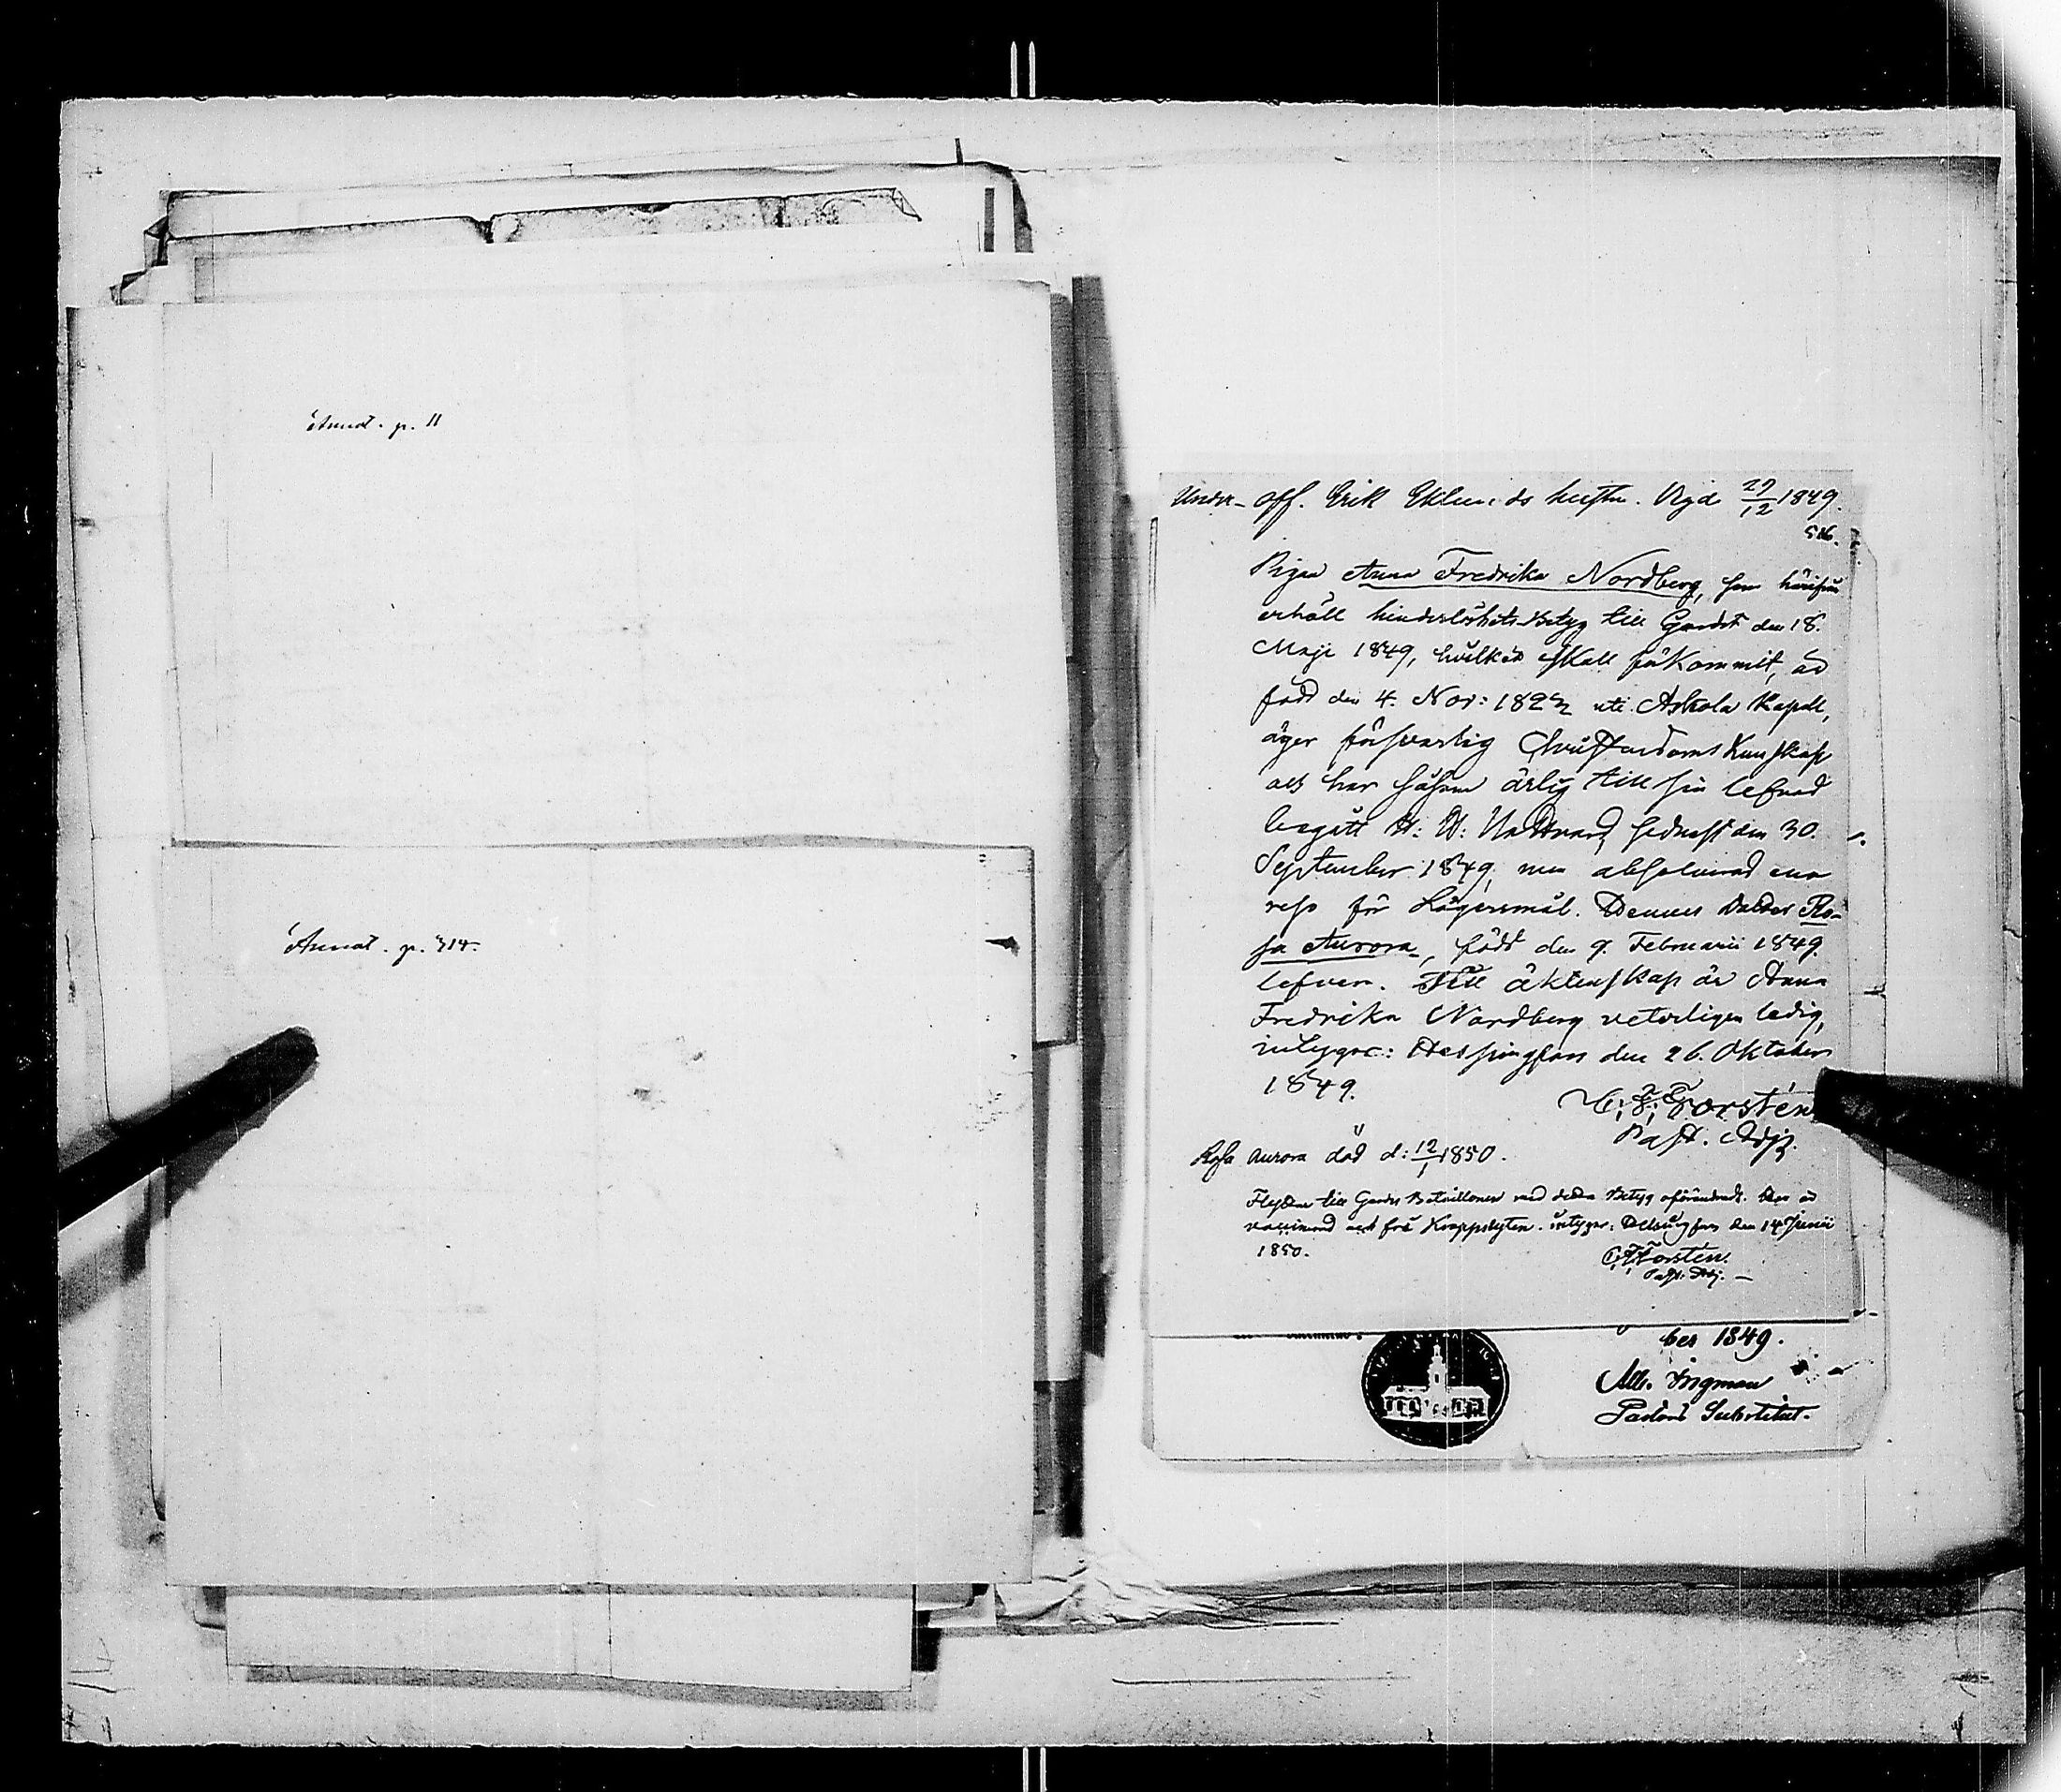 Annot. p. 11
Annot. p. 314.
Under-off. Erik Eklunds hustru. Vigd 29/12 1849.
516.
Pigan Anna Fredrika Nordberg, som härifrån
erhöll hinderslöshets Betyg till Gardet den 18.
Maji 1849, hvilket skall förkommit, är
född den 4. Nov: 1822 uti Askola Kapell,
äger försvarlig Christendoms Kunskap
och har såsom ärlig till sin lefnad
begått H: H: Nattvard, sednast den 30.
September 1849, men absolverad ena
reso för Lägersmål. Dennes dotter Ro-
sa Aurora, född den 9. Februarii 1849.
lefver. Till äktenskap är Anna
Fredrika Nordberg veterligen ledig,
intygar: Helsingfors den 26. Oktober
1849.
C: F: Forstén
Past. Adj.
Rosa Aurora död d: 12/1 1850.
Flyttar till Gardes Bataillonen med detta Betyg oförändradt. Hon är
vaccinerad och fri Kroppslyten. intygar: Helsingfors den 14 Junii
1850.
C: F: Forstén.
Past. Adj. —
ber 1849.
Alb. Ingman
Pastors Substitut.